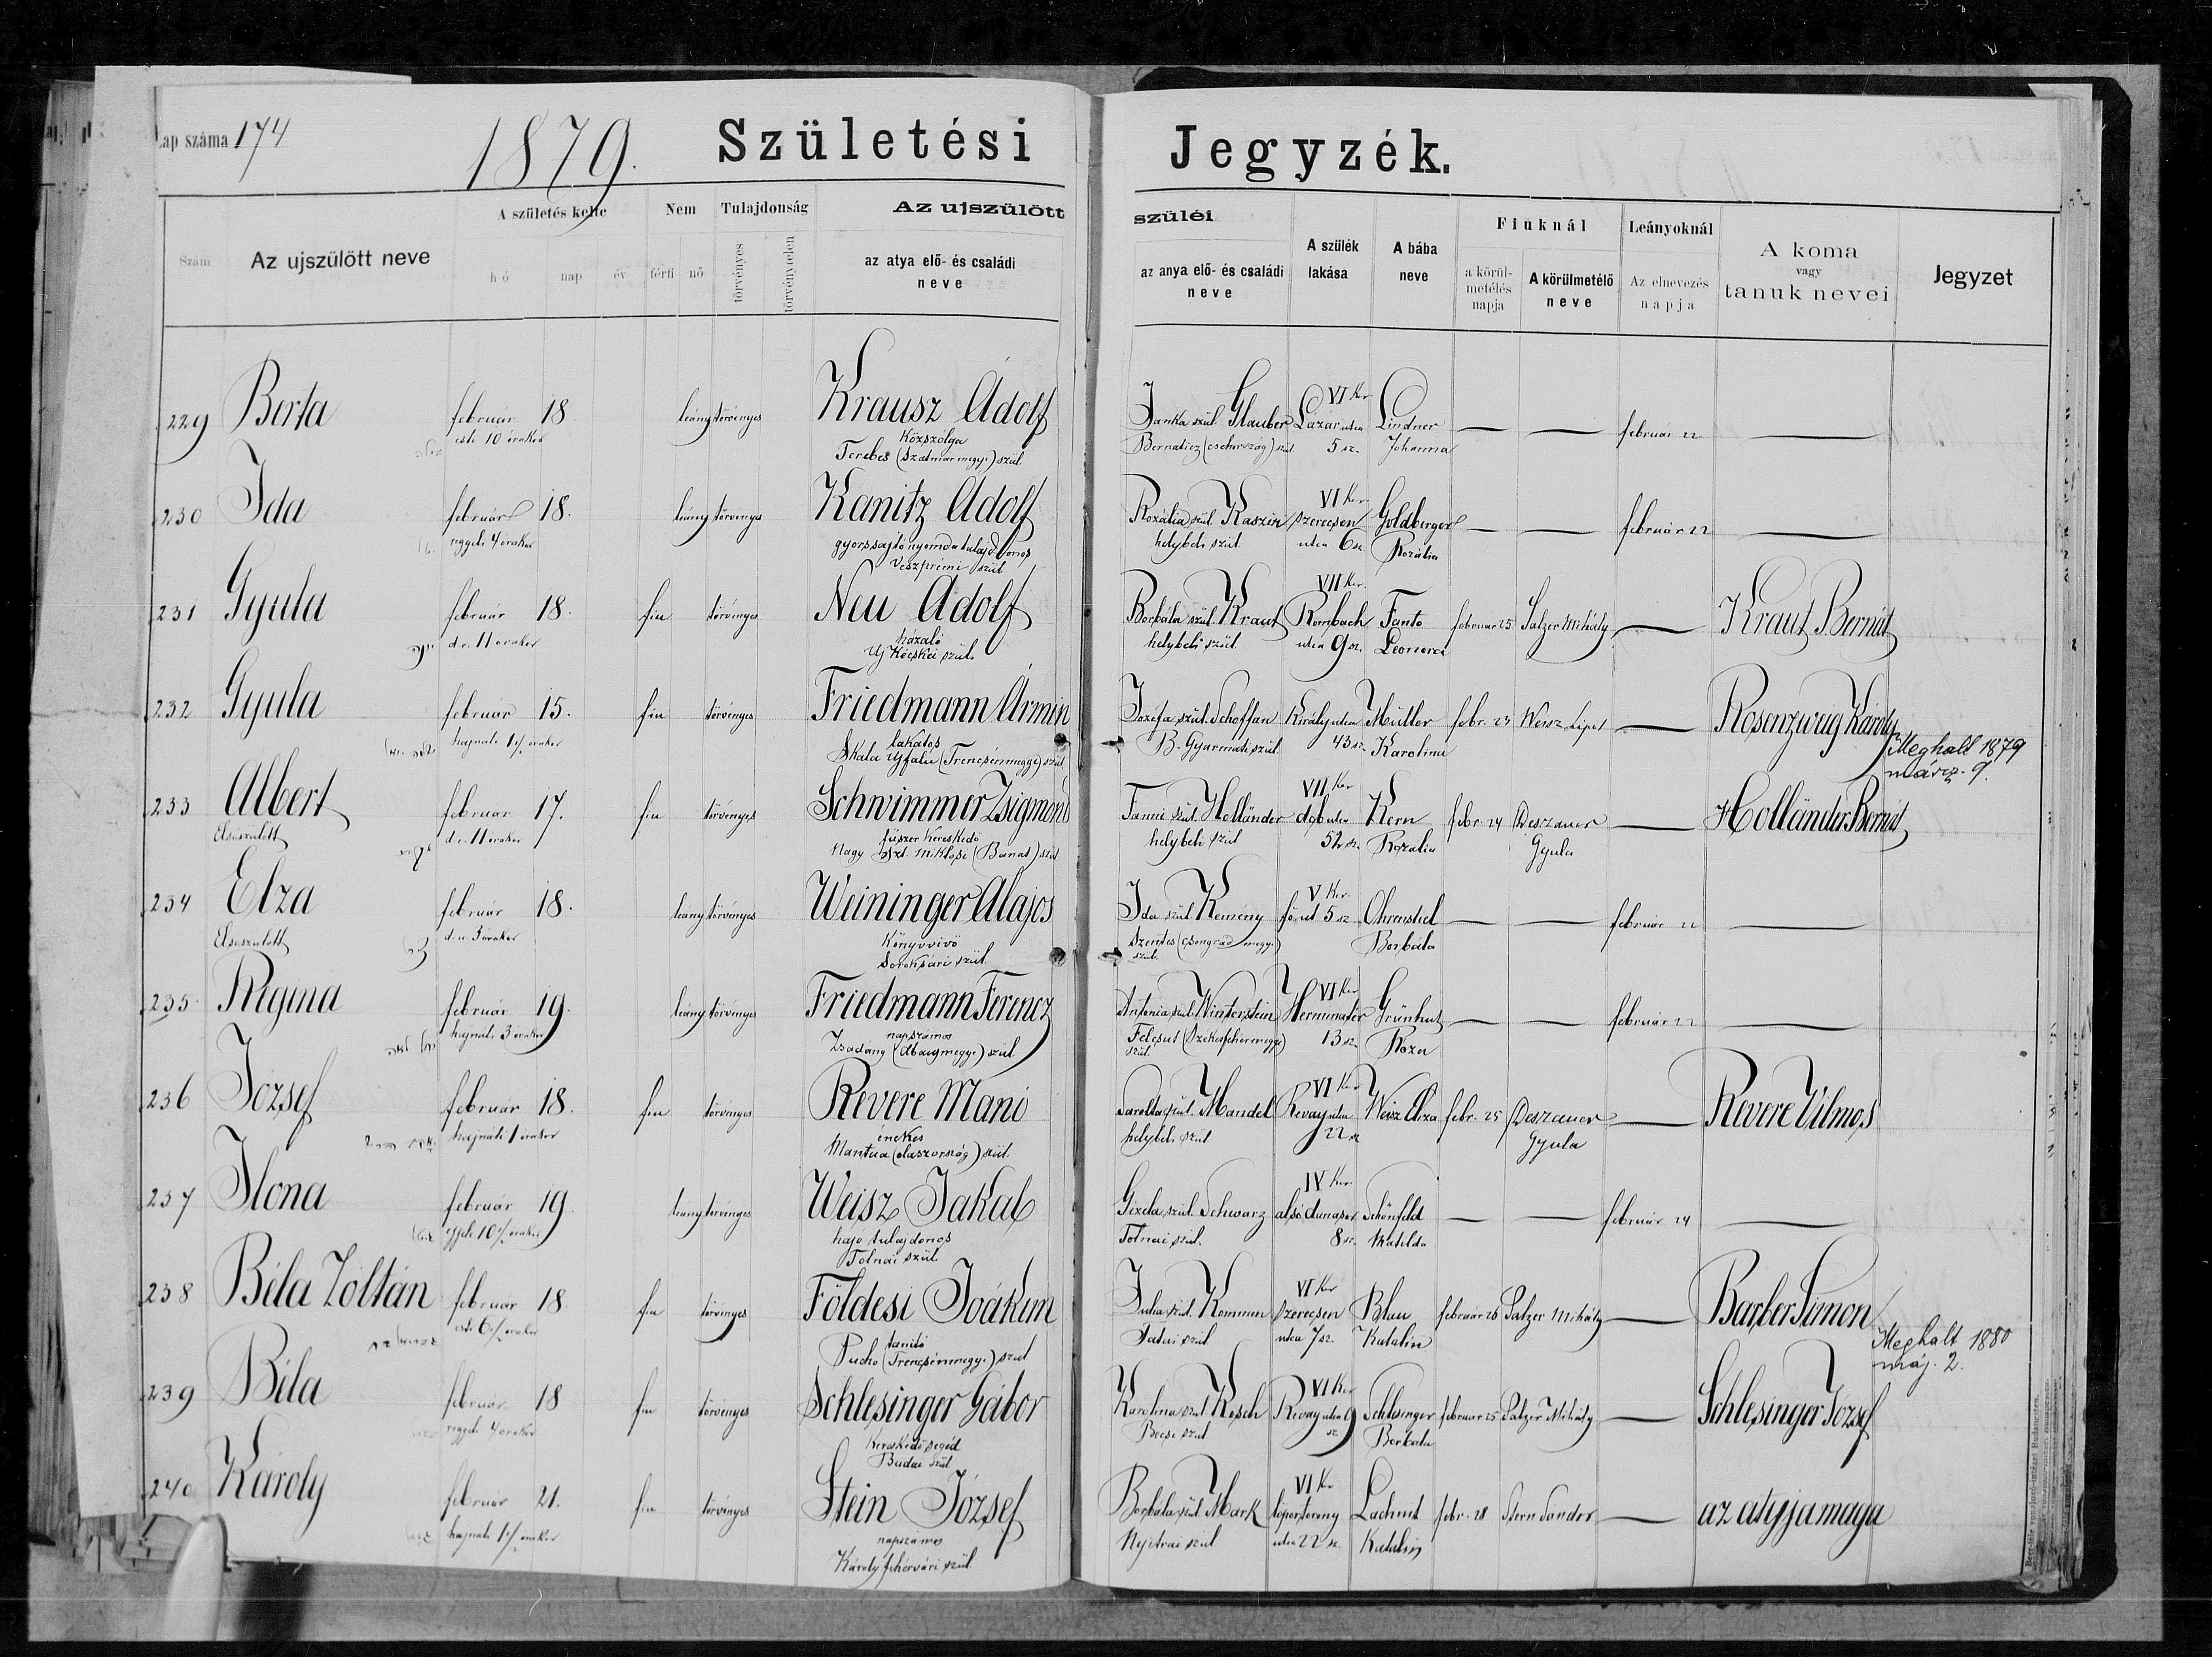 Lap száma 174
1879.
Születési Jegyzék.
Szám
Az ujszülött neve
A születés kelte
hó nap év
Nem
férfi nő
Tulajdonság
törvényes
törvénytelen
Az ujszülött szüléi
az atya elő- és családi
neve
az anya elő- és családi
neve
A szülék
lakása
A bába
neve
Fiuknál
a körül-
metélés
napja
A körülmetélő
neve
Leányoknál
Az elnevezés
napja
A koma
vagy
tanuk nevei
Jegyzet
229 Berta február 18 leány törvényes Krausz Adolf Janka szül. Glauber VI Ker Lázár utca Lindner — — február 22 —
esti 10 órakor közszolga
Terebes (Szatmármegye) szül. Bernaticz (csehország) szül. 5 sz. Johanna
230 Ida február 18. leány törvényes Kanitz Adolf Rozália szül. VI Ker. szerecsen Goldberger — — február 22 —
reggeli 4 órakor gyorssajtónyomda tulajdonos helybeli szül. utca 6 sz. Rozália
Veszprémi szül
231 Gyula február 18. fiu törvényes Neu Adolf Borbála szül. Kraut VII Ker. Rombach Fanto február 25. Salzer Mihály — Kraut Bernát
d.e. 11 órakor házaló
szül. helybeli szül. utca 9 sz. Leonora
232 Gyula február 15. fiu törvényes Friedmann Ármin Jozefa szül. Schoffan Király utca Müller febr. 23 Weisz Lipot — Rosenzweig Károly
hajnali órakor lakatos
Skala Ujfalu (Trencsénmegye) szül. B. Gyarmati szül 43 sz. Karolina
Meghalt 1879
márcz. 9.
233 Albert február 17. fiu törvényes Schwimmer Zsigmond Fanni szül. Holländer VII Ker dob utca Kern febr. 24 Deszauer — Holländer Bernát
Elsőszülött d.e. 11 órakor füszer kereskedő
Nagy szt. Miklosi (Banat) szül helybeli szül 52 sz. Rozalia Gyula
234 Elza február 18. leány törvényes Weininger Alajos Ida szül. Kemény V Ker. fő ut 5 sz Ohrenstel — — február 22 —
Elsőszülött d.u. 3 órakor Könyvvivő
Soroksári szül. Szentes (Csongrad megye) szül. Borbala
235 Regina február 19. leány törvényes Friedmann Ferencz Antonia szül. Winterstein VI Ker Hermina tér Grünhut — — február 22 —
hajnali 3 órakor napszámos
Zsadány (Abaujmegye) szül. Felcsut (Székesfehérmegye) szül. 13 sz. Roza
236 József február 18. fiu törvényes Revere Mano Sarolta szül. Mandel VI Ker Revay utca Weisz Eliza febr. 25 Deszauer — Revere Vilmos
hajnali 1 órakor énekes
Mantua (olaszország) szül. helybeli szül 22 sz Gyula
237 Ilona február 19 leány törvényes Weisz Jakab Gizela szül. Schwarz IV Ker. alsó dunasor Schönfeld — — február 24 —
10 órakor hajo tulajdonos
Tolnai szül. Tolnai szül. 8 sz. Matilda
238 Béla Zoltán február 18. fiu törvényes Földesi Joákim Julia szül. VI Ker szerecsen Blau február 26 Salzer Mihály — Barber Simon
esti 6 órakor tanitó
Pucho (Trencsénmegye) szül szül utca 7 sz. Katalin
Meghalt 1880
máj. 2.
239 Béla február 18 fiu törvényes Schlesinger Gábor Karolina szül. VI Ker. Revay utca 9 Schlesinger február 25 Salzer Mihály — Schlesinger József
reggeli 4 órakor Kereskedő segéd
Budai szül. Becsi szül sz. Borbala
240 Károly február 21. fiu törvényes Stein József Borbala szül. Mark VI Ker Lachnit febr. 28 Stern Sandor — az atyja maga
hajnali órakor napszámos
Károly fehérvári szül. Nyitrai szül. utca 22 sz. Katalin